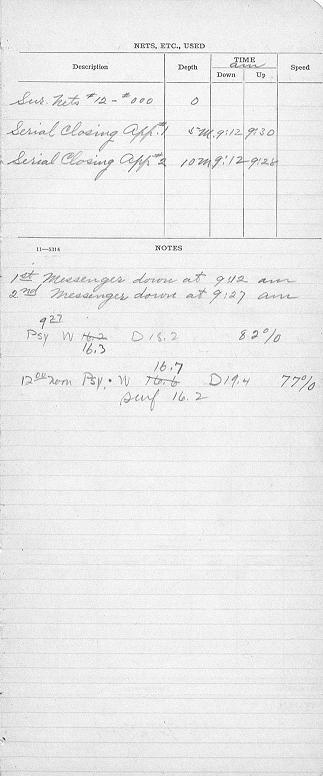 NETS, ETC., USED
Description Depth TIME am Speed
Down Up
Sur. Nets #12 - #000 0
Serial Closing App. #1 5 M 9:12 9:30
Serial Closing App. #2 10 M 9:12 9:28
11—5314 NOTES
1st Messenger down at 9:12 am
2nd Messenger down at 9:27 am
9 27
Psy W 16.2 D 18.2 82%
16.3
16.7
12 00 noon Psy. W 16.6 D 19.4 77%
Surf 16.2